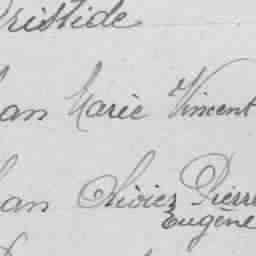 ristide
an Marie Vincent
an Olivier Pierre
Eugène